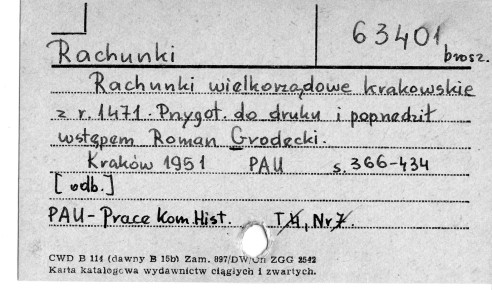 63401
brosz.
Rachunki
Rachunki wielkorządowe krakowskie
z r. 1471. Przygot. do druku i poprzedził
wstępem Roman Grodecki.
Kraków 1951 PAU s. 366-434
[odb.]
PAU - Prace Kom. Hist. T. 4, Nr 7.
CWD B 114 (dawny B 15b) Zam. 897/DW/Un ZGG 2542
Karta katalogowa wydawnictw ciągłych i zwartych.